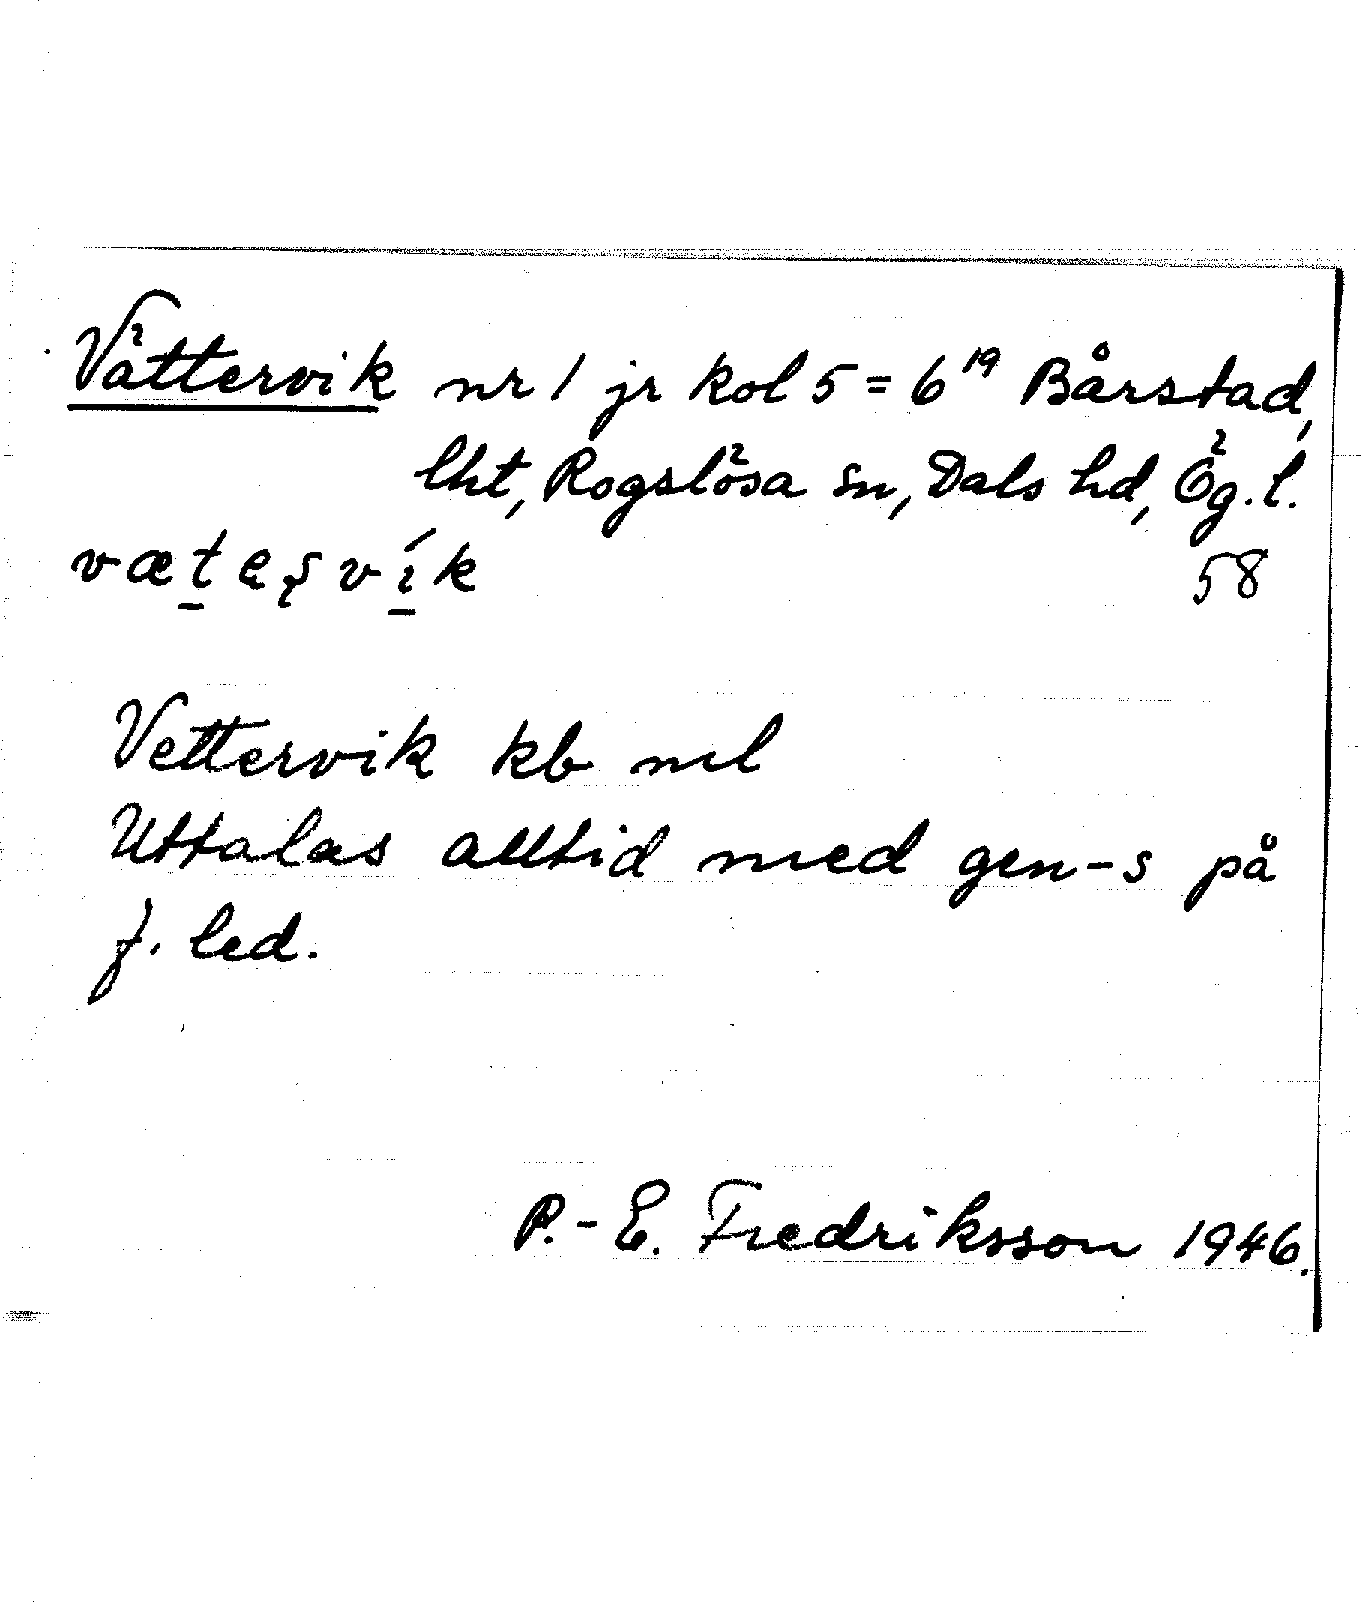 Vättervik nr 1 jr kol 5 = 6¹⁹ Bårstad,
lht, Rogslösa sn, Dals hd, Ög. l.
58
Vettervik kb ml
Uttalas alltid med gen-s på
f. led.
P.-E. Fredriksson 1946.